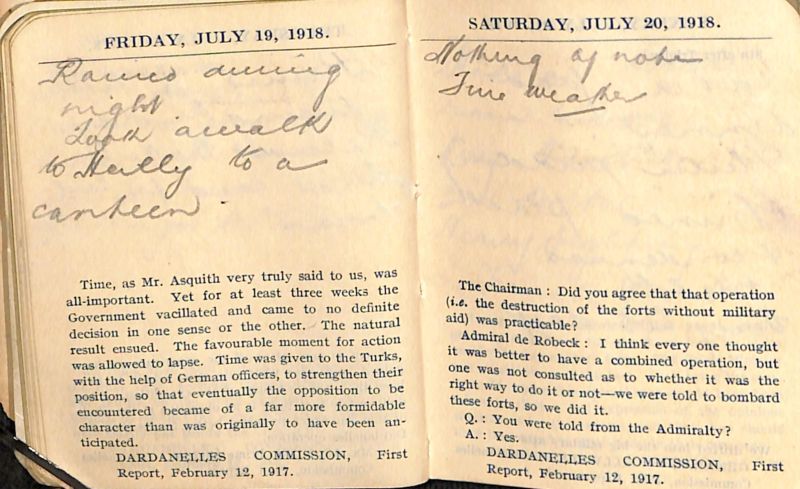 FRIDAY, JULY 19, 1918.
Rained during
night
Took a walk
to Heilly to a
canteen.
Time, as Mr. Asquith very truly said to us, was
all-important. Yet for at least three weeks the
Government vacillated and came to no definite
decision in one sense or the other. The natural
result ensued. The favourable moment for action
was allowed to lapse. Time was given to the Turks,
with the help of German officers, to strengthen their
position, so that eventually the opposition to be
encountered became of a far more formidable
character than was originally to have been an-
ticipated.
DARDANELLES COMMISSION, First
Report, February 12, 1917.
SATURDAY, JULY 20, 1918.
Nothing of note
Fine weather
The Chairman : Did you agree that that operation
(i.e. the destruction of the forts without military
aid) was practicable?
Admiral de Robeck : I think every one thought
it was better to have a combined operation, but
one was not consulted as to whether it was the
right way to do it or not—we were told to bombard
these forts, so we did it.
Q. : You were told from the Admiralty?
A. : Yes.
DARDANELLES COMMISSION, First
Report, February 12, 1917.